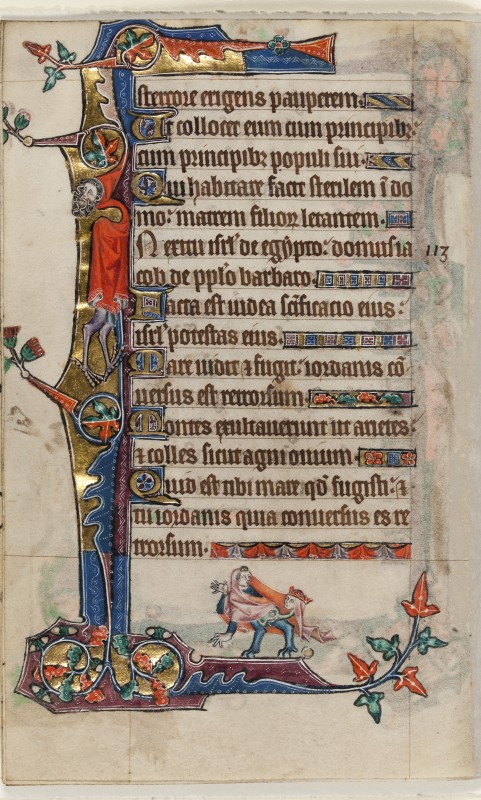 stercore erigens pauperem.
Et collocet eum cum principibz:
cum principibz populi sui.
Qui habitare facit sterilem ī do
mo: matrem filior letantem.
N exitu isrl de egypto: domus ia
cob de pplo barbaro.
Facta est iudea scīficacio eius:
isrl potestas eius.
Mare uidit & fugit: iordanis cō
uersus est retrorsum.
Montes exultauerunt ut arietes:
& colles sicut agni ouium.
Quid est tibi mare qd fugisti: &
tu iordanis quia conuersus es re
trorsum.
113